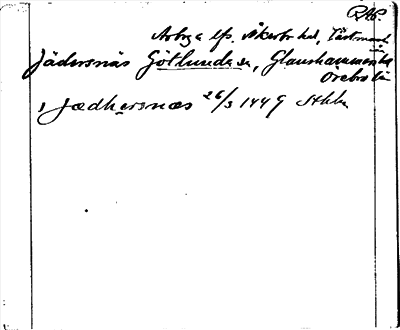 RAP.
Arby e lf. Åkerbo hd, Västmanl.
Jädersnäs Götlunda sn, Glanshammars hd
Örebro län
i Jædhersnæs 26/3 1449 Sthlm